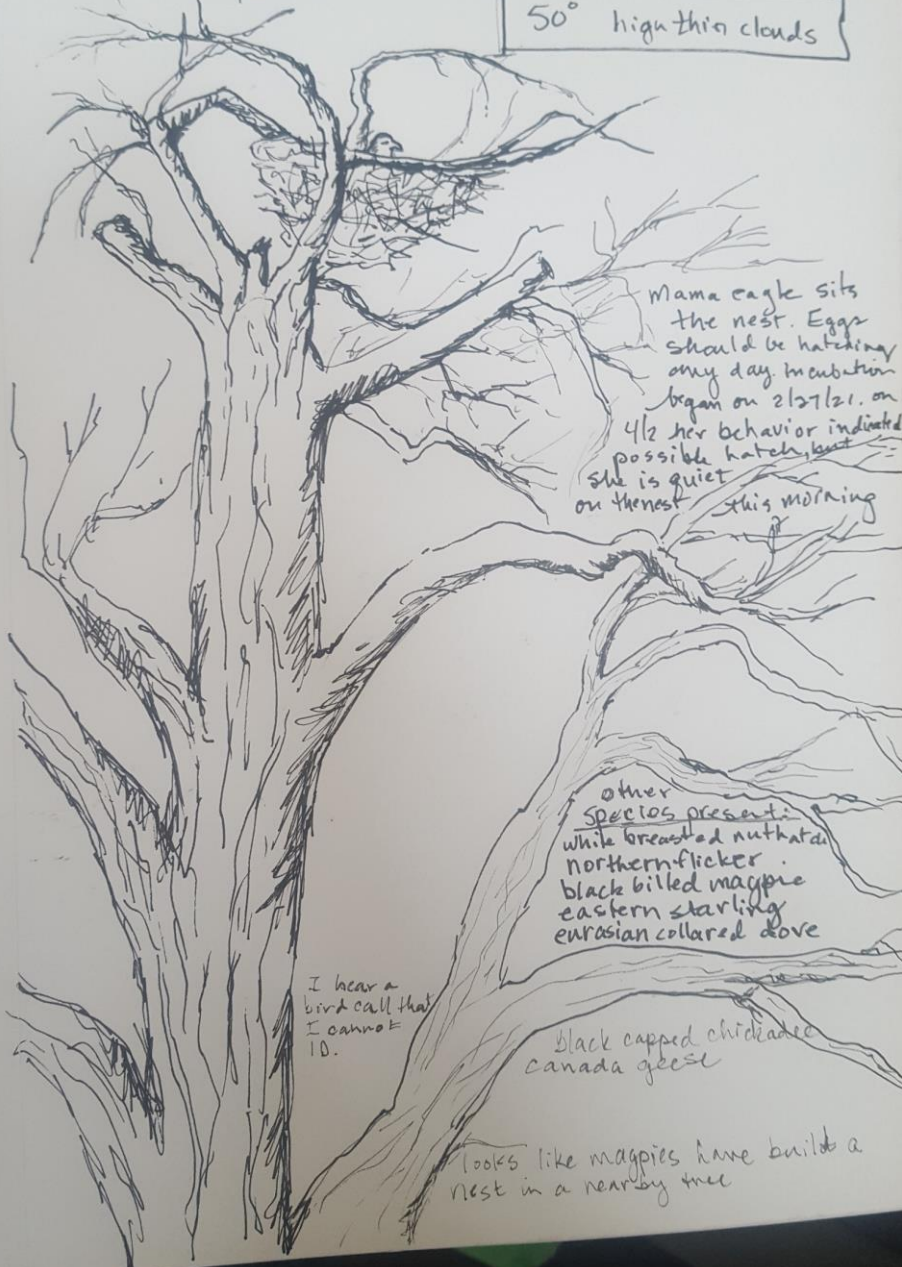 50° high thin clouds
Mama eagle sits
the nest. Eggs
should be hatching
any day. Incubation
began on 2/27/21. on
4/2 her behavior indicated
possible hatch, but
she is quiet
on the nest this morning
other
species present:
white breasted nuthatch
northern flicker
black billed magpie
eastern starling
eurasian collared dove
I hear a
bird call that
I cannot
ID.
black capped chickadee
canada geese
looks like magpies have built a
nest in a nearby tree